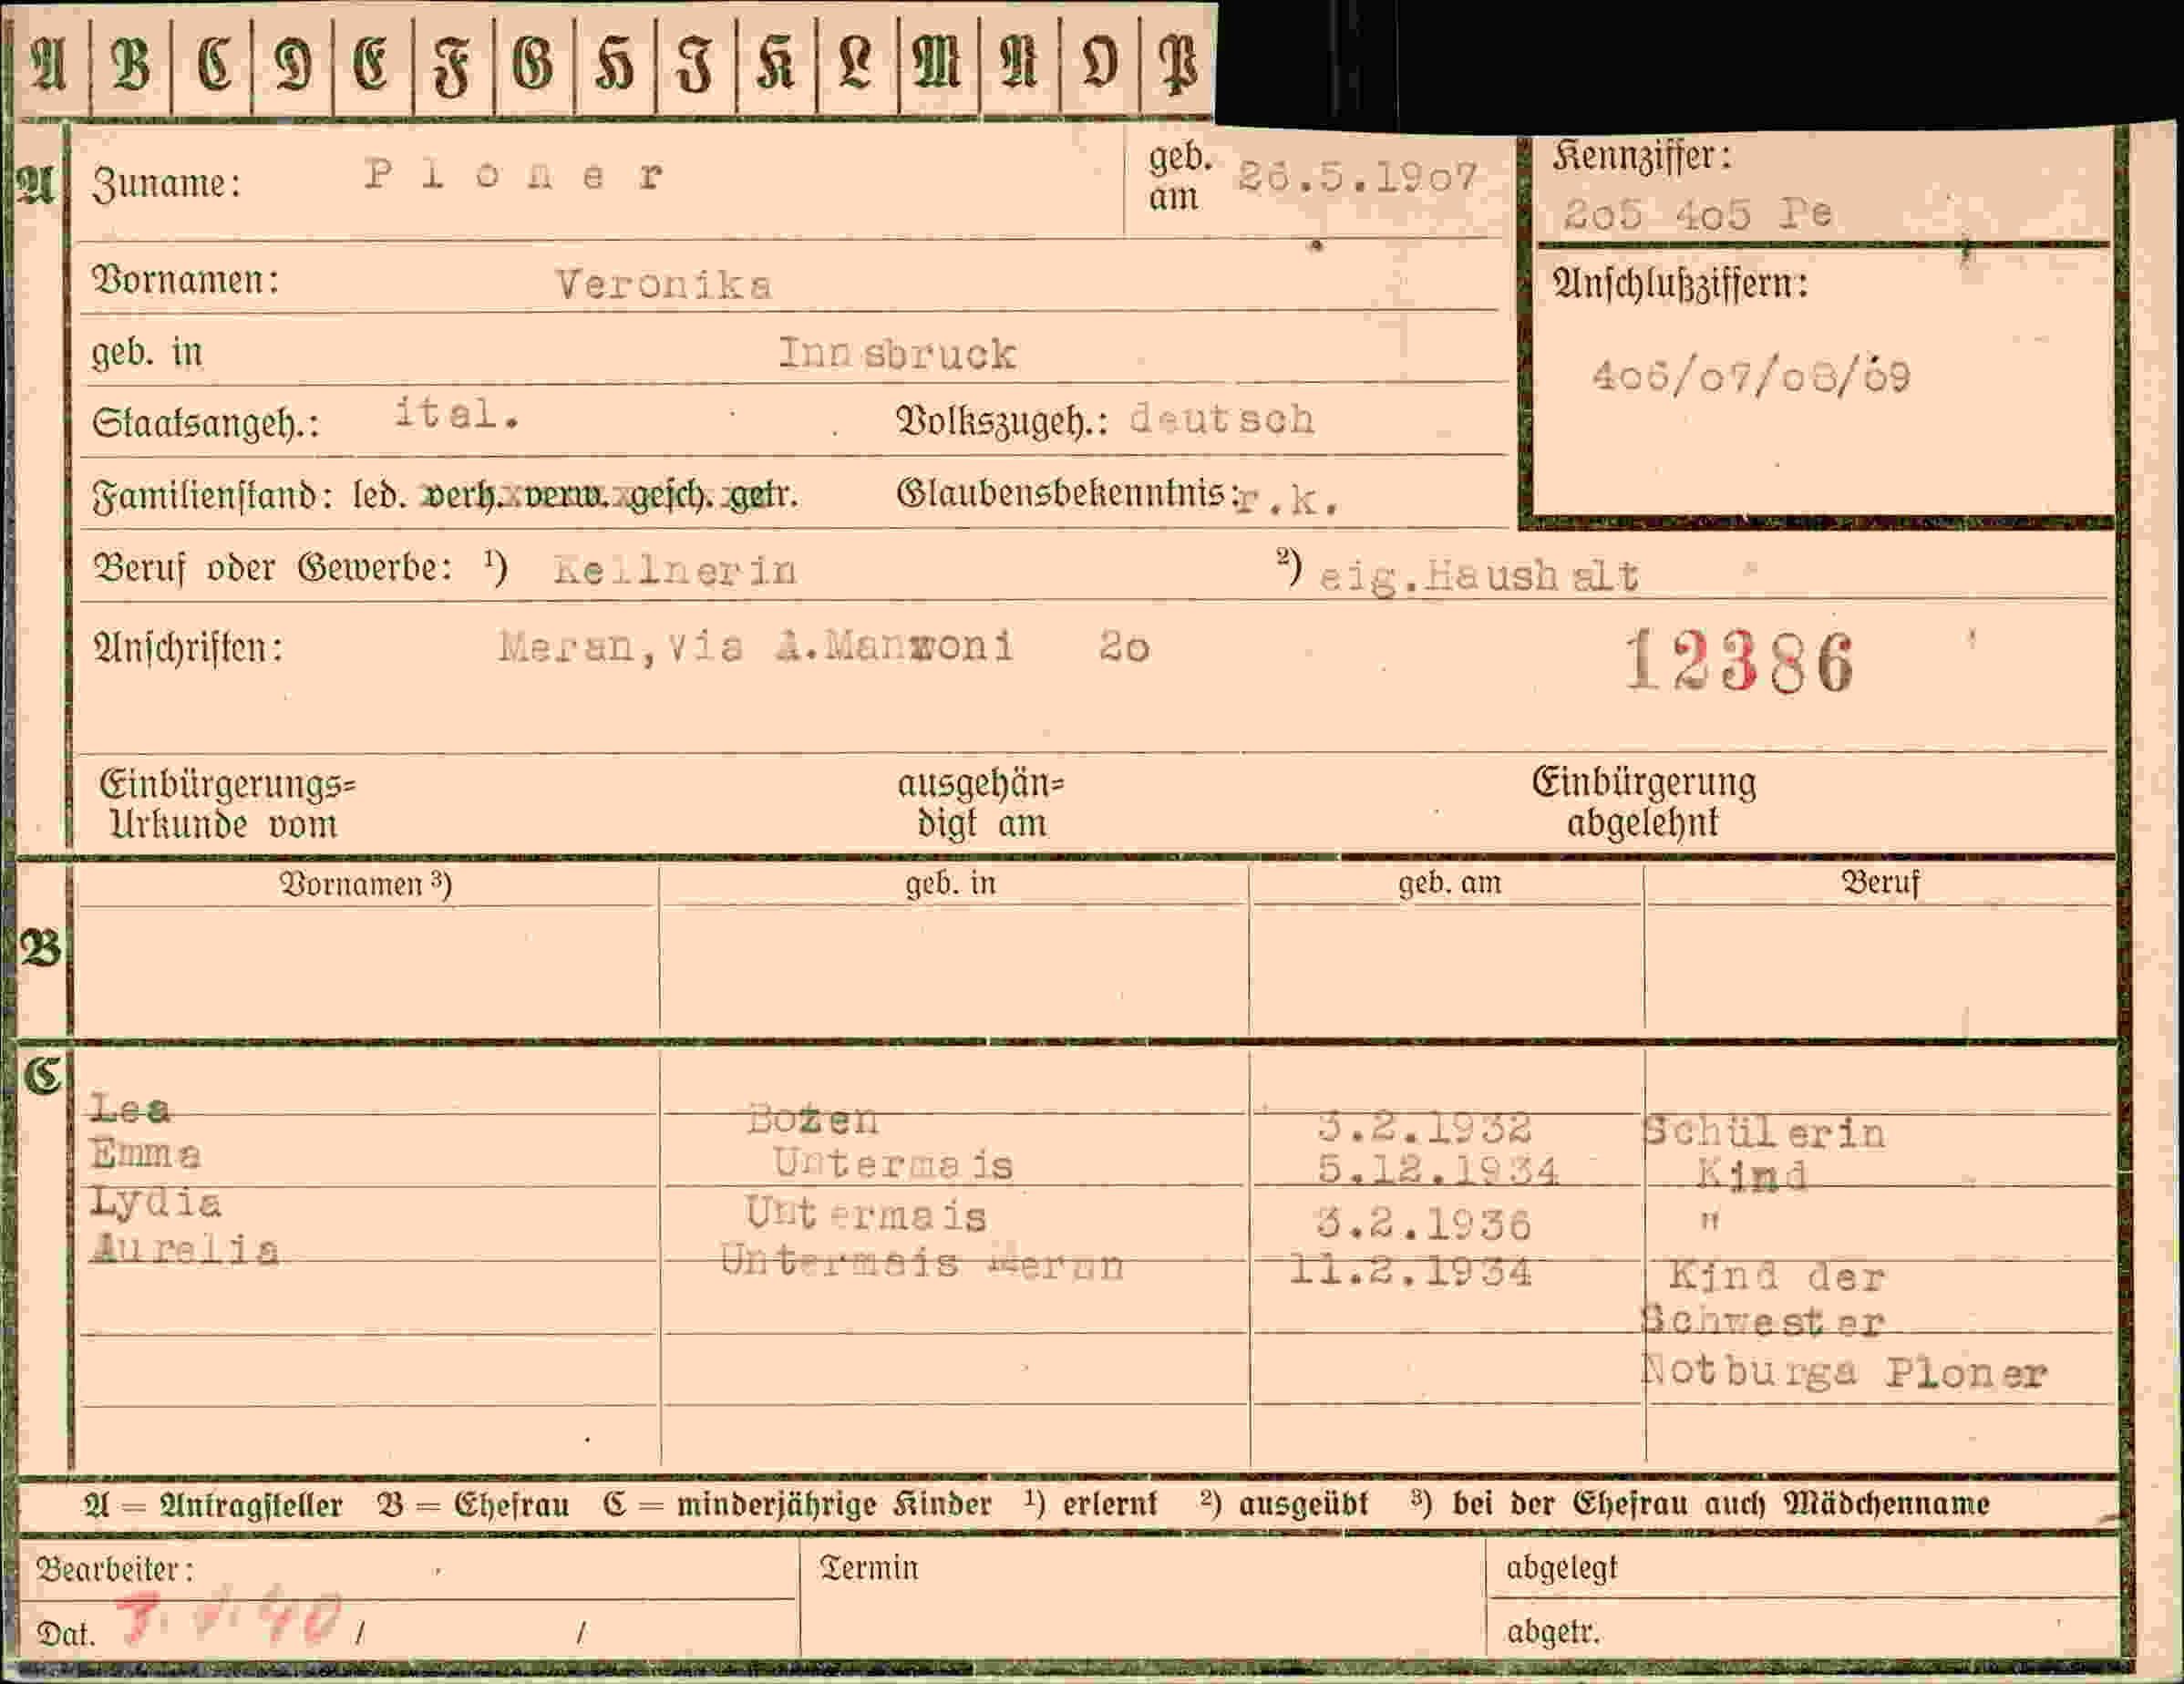 A B C D E F G H I K L M N O P
A Zuname: Ploner geb. am 26.5.1907 Kennziffer:
205 405 Pe
Vornamen: Veronika Anschlußziffern:
geb. in Innsbruck
406/07/08/09
Staatsangeh.: ital. Volkszugeh.: deutsch
Familienstand: led. verh. verw. gesch. getr. Glaubensbekenntnis: r.k.
Beruf oder Gewerbe: ¹) Kellnerin ²) eig.Haushalt
Anschriften: Meran, via A.Manzoni 20 12386
Einbürgerungs= ausgehän= Einbürgerung
Urkunde vom digt am abgelehnt
Vornamen ³) geb. in geb. am Beruf
B
C
Lea Bozen 3.2.1932 Schülerin
Emma Untermais 5.12.1934 Kind
Lydia Untermais 3.2.1936 "
Aurelia Untermais Meran 11.2.1934 Kind der
Schwester
Notburga Ploner
A = Antragsteller B = Ehefrau C = minderjährige Kinder ¹) erlernt ²) ausgeübt ³) bei der Ehefrau auch Mädchenname
Bearbeiter: Termin abgelegt
Dat. / / abgetr.